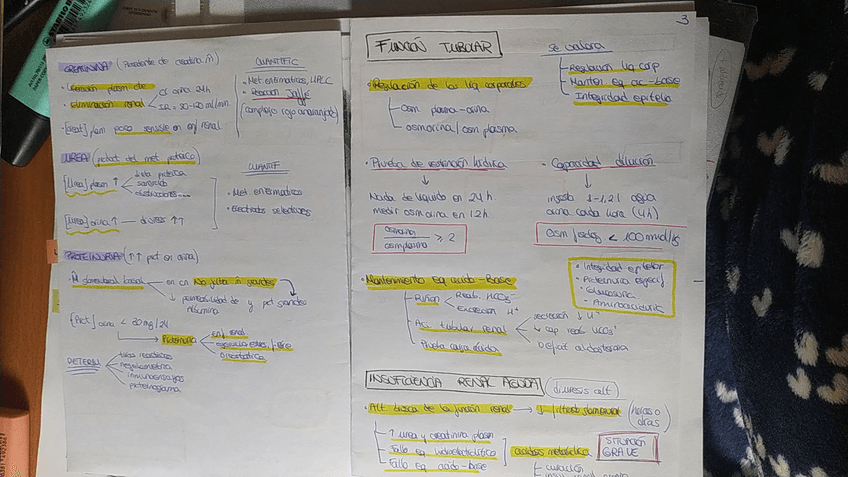 CREATININA (Procedente de creatina m)
CUANTIFIC
Creación plasm cte
Eliminación renal
Cl orina 24h
IR = 30-40 ml/min
Met enzimaticos, HPLC
Reacción Jaffe
(complejo rojo anaranjado)
[creat] plasm poco sensible en enf renal.
UREA (product del met proteico)
CUANTIF
[Urea] plasm ↑
dieta proteica
sangrado
obstrucciones...
Met enzimaticos
Electrodos selectivos
[Urea] orina ↑ — diuresis ↑↑
PROTEINURIA (↑↑ prot en orina)
M glomerular basal → en cn No filtra m grandes
permeabilidad de y prot grandes
albúmina
[Prot] orina < 30 mg/24
Proteinuria
enf renal
Ortostática
DETERM
tiras reactivas
nefelometria
inmunoensayos
proteinograma
3
FUNCIÓN TUBULAR
se valora
Regulación liq corp
Manten eq ac-base
Integridad epitelio
Regulación de los liq corporales
Osm plasma-orina
osm orina/osm plasma
Prueba de restricción hídrica
↓
Nada de líquido en 24h
medir osm orina en 12h
osm orina/osm plasma ≥ 2
Capacidad dilución
↓
ingesta 1-1,2 l agua
orina cada hora (4h)
Osm < 100 mmol/kg
Integridad epitelial
Proteinuria especif
Glucosuria
Aminoaciduria
Mantenimiento Eq ácido-Base
Riñon
Reab. HCO3-
Excreción H+
Ac. tubular renal
excreción ↓ H+
↓ cap reab HCO3-
Déficit aldosterona
Prueba carga ácida
INSUFICIENCIA RENAL AGUDA (diuresis alt)
Alt brusca de la función renal → ↓ filtrado glomerular (horas o días)
↑ urea y creatinina plasm
Fallo eq hidroelectrolítico
Fallo eq ácido-base
acidosis metabólica
SITUACIÓN GRAVE